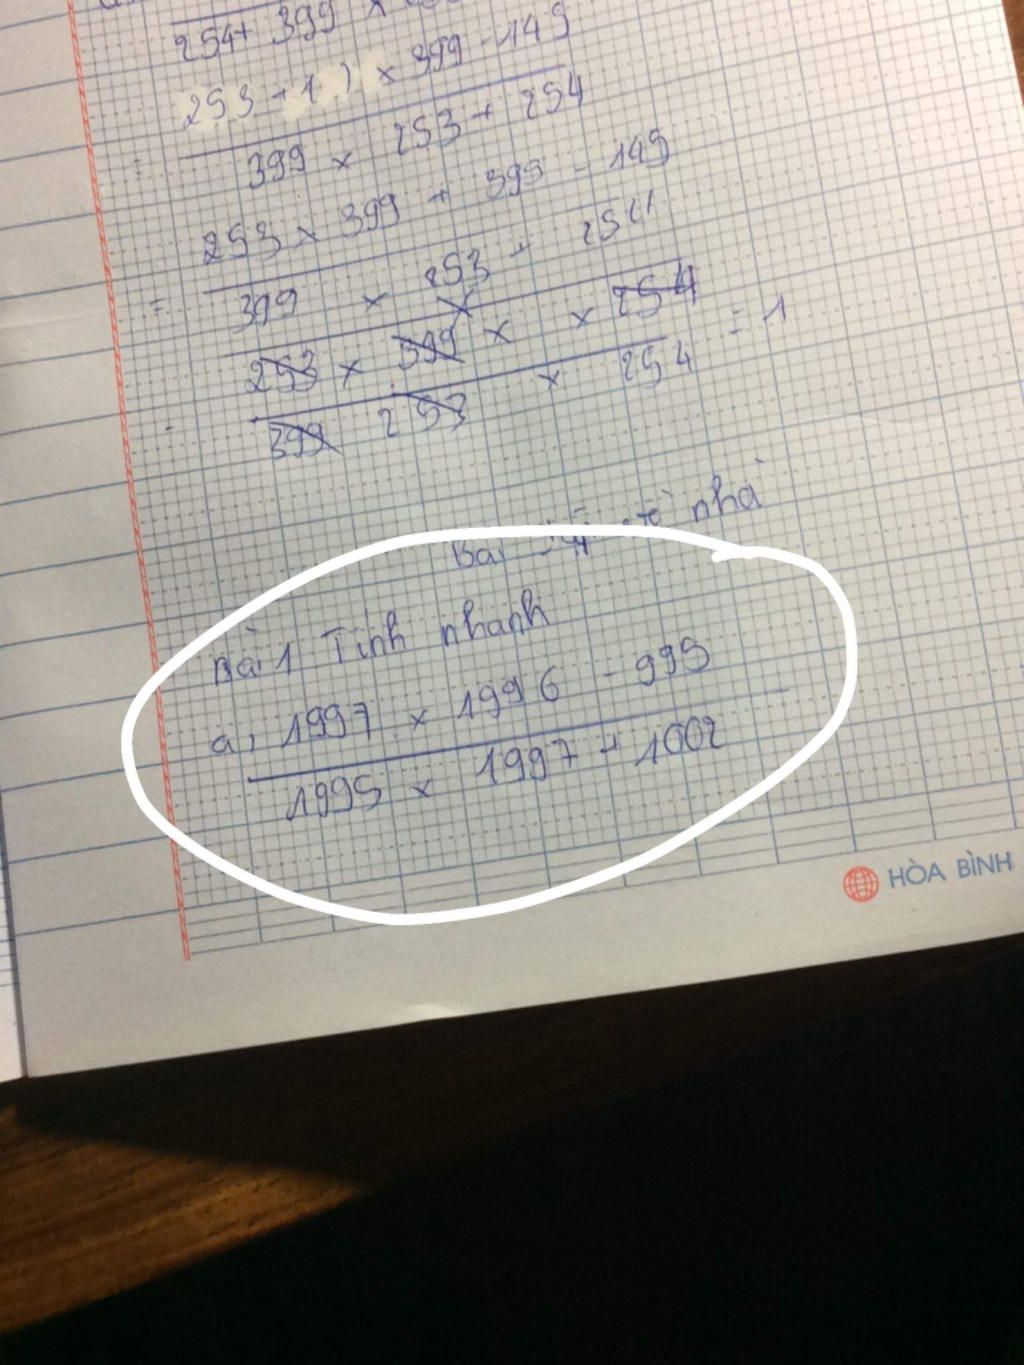 254 + 399 x
253 + 1 ) x 399 - 145
= 399 x 253 + 254
253 x 399 + 399 - 145
= 399 x 253 + 254
253 x 399 x x 254
399 253 x 254 = 1
Bài về nhà
Bài 1 Tính nhanh
a, 1997 x 1996 - 995
1995 x 1997 + 1002
HÒA BÌNH